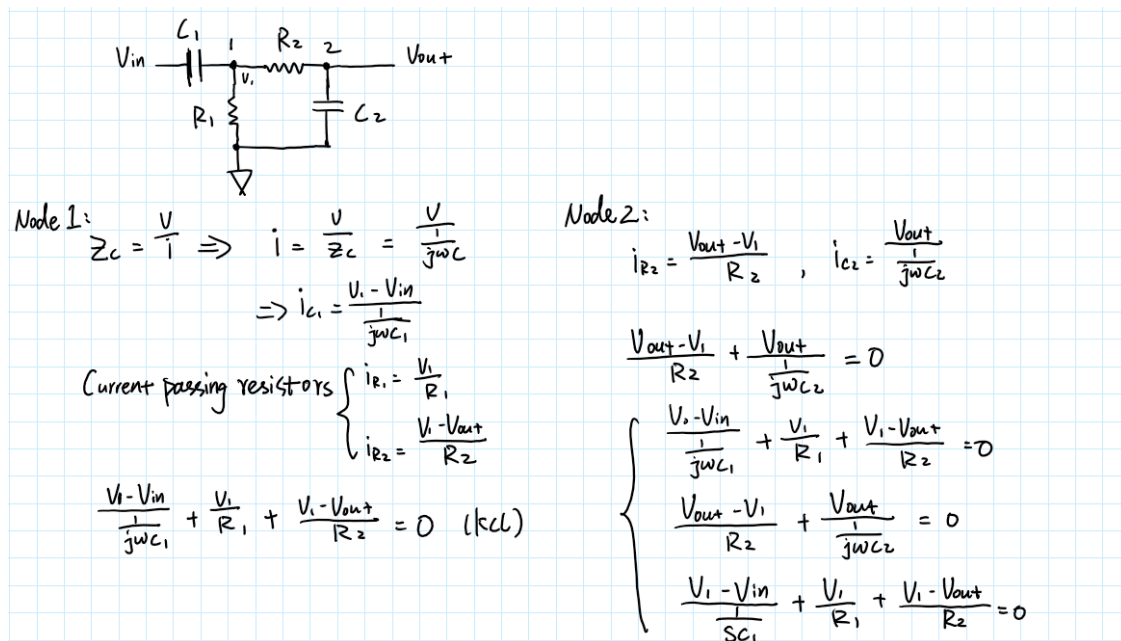 C₁ 1 R₂ 2
Vin V₁ Vout
R₁ C₂
Node 1:
Zc = V/i ⇒ i = V/Zc = V/(1/jωC)
⇒ ic₁ = (V₁ - Vin)/(1/jωC₁)
Current passing resistors { iR₁ = V₁/R₁
iR₂ = (V₁ - Vout)/R₂
(V₁ - Vin)/(1/jωC₁) + V₁/R₁ + (V₁ - Vout)/R₂ = 0 (kcl)
Node 2:
iR₂ = (Vout - V₁)/R₂ , ic₂ = Vout/(1/jωC₂)
(Vout - V₁)/R₂ + Vout/(1/jωC₂) = 0
{ (V₀ - Vin)/(1/jωC₁) + V₁/R₁ + (V₁ - Vout)/R₂ = 0
(Vout - V₁)/R₂ + Vout/(1/jωC₂) = 0
(V₁ - Vin)/(1/SC₁) + V₁/R₁ + (V₁ - Vout)/R₂ = 0